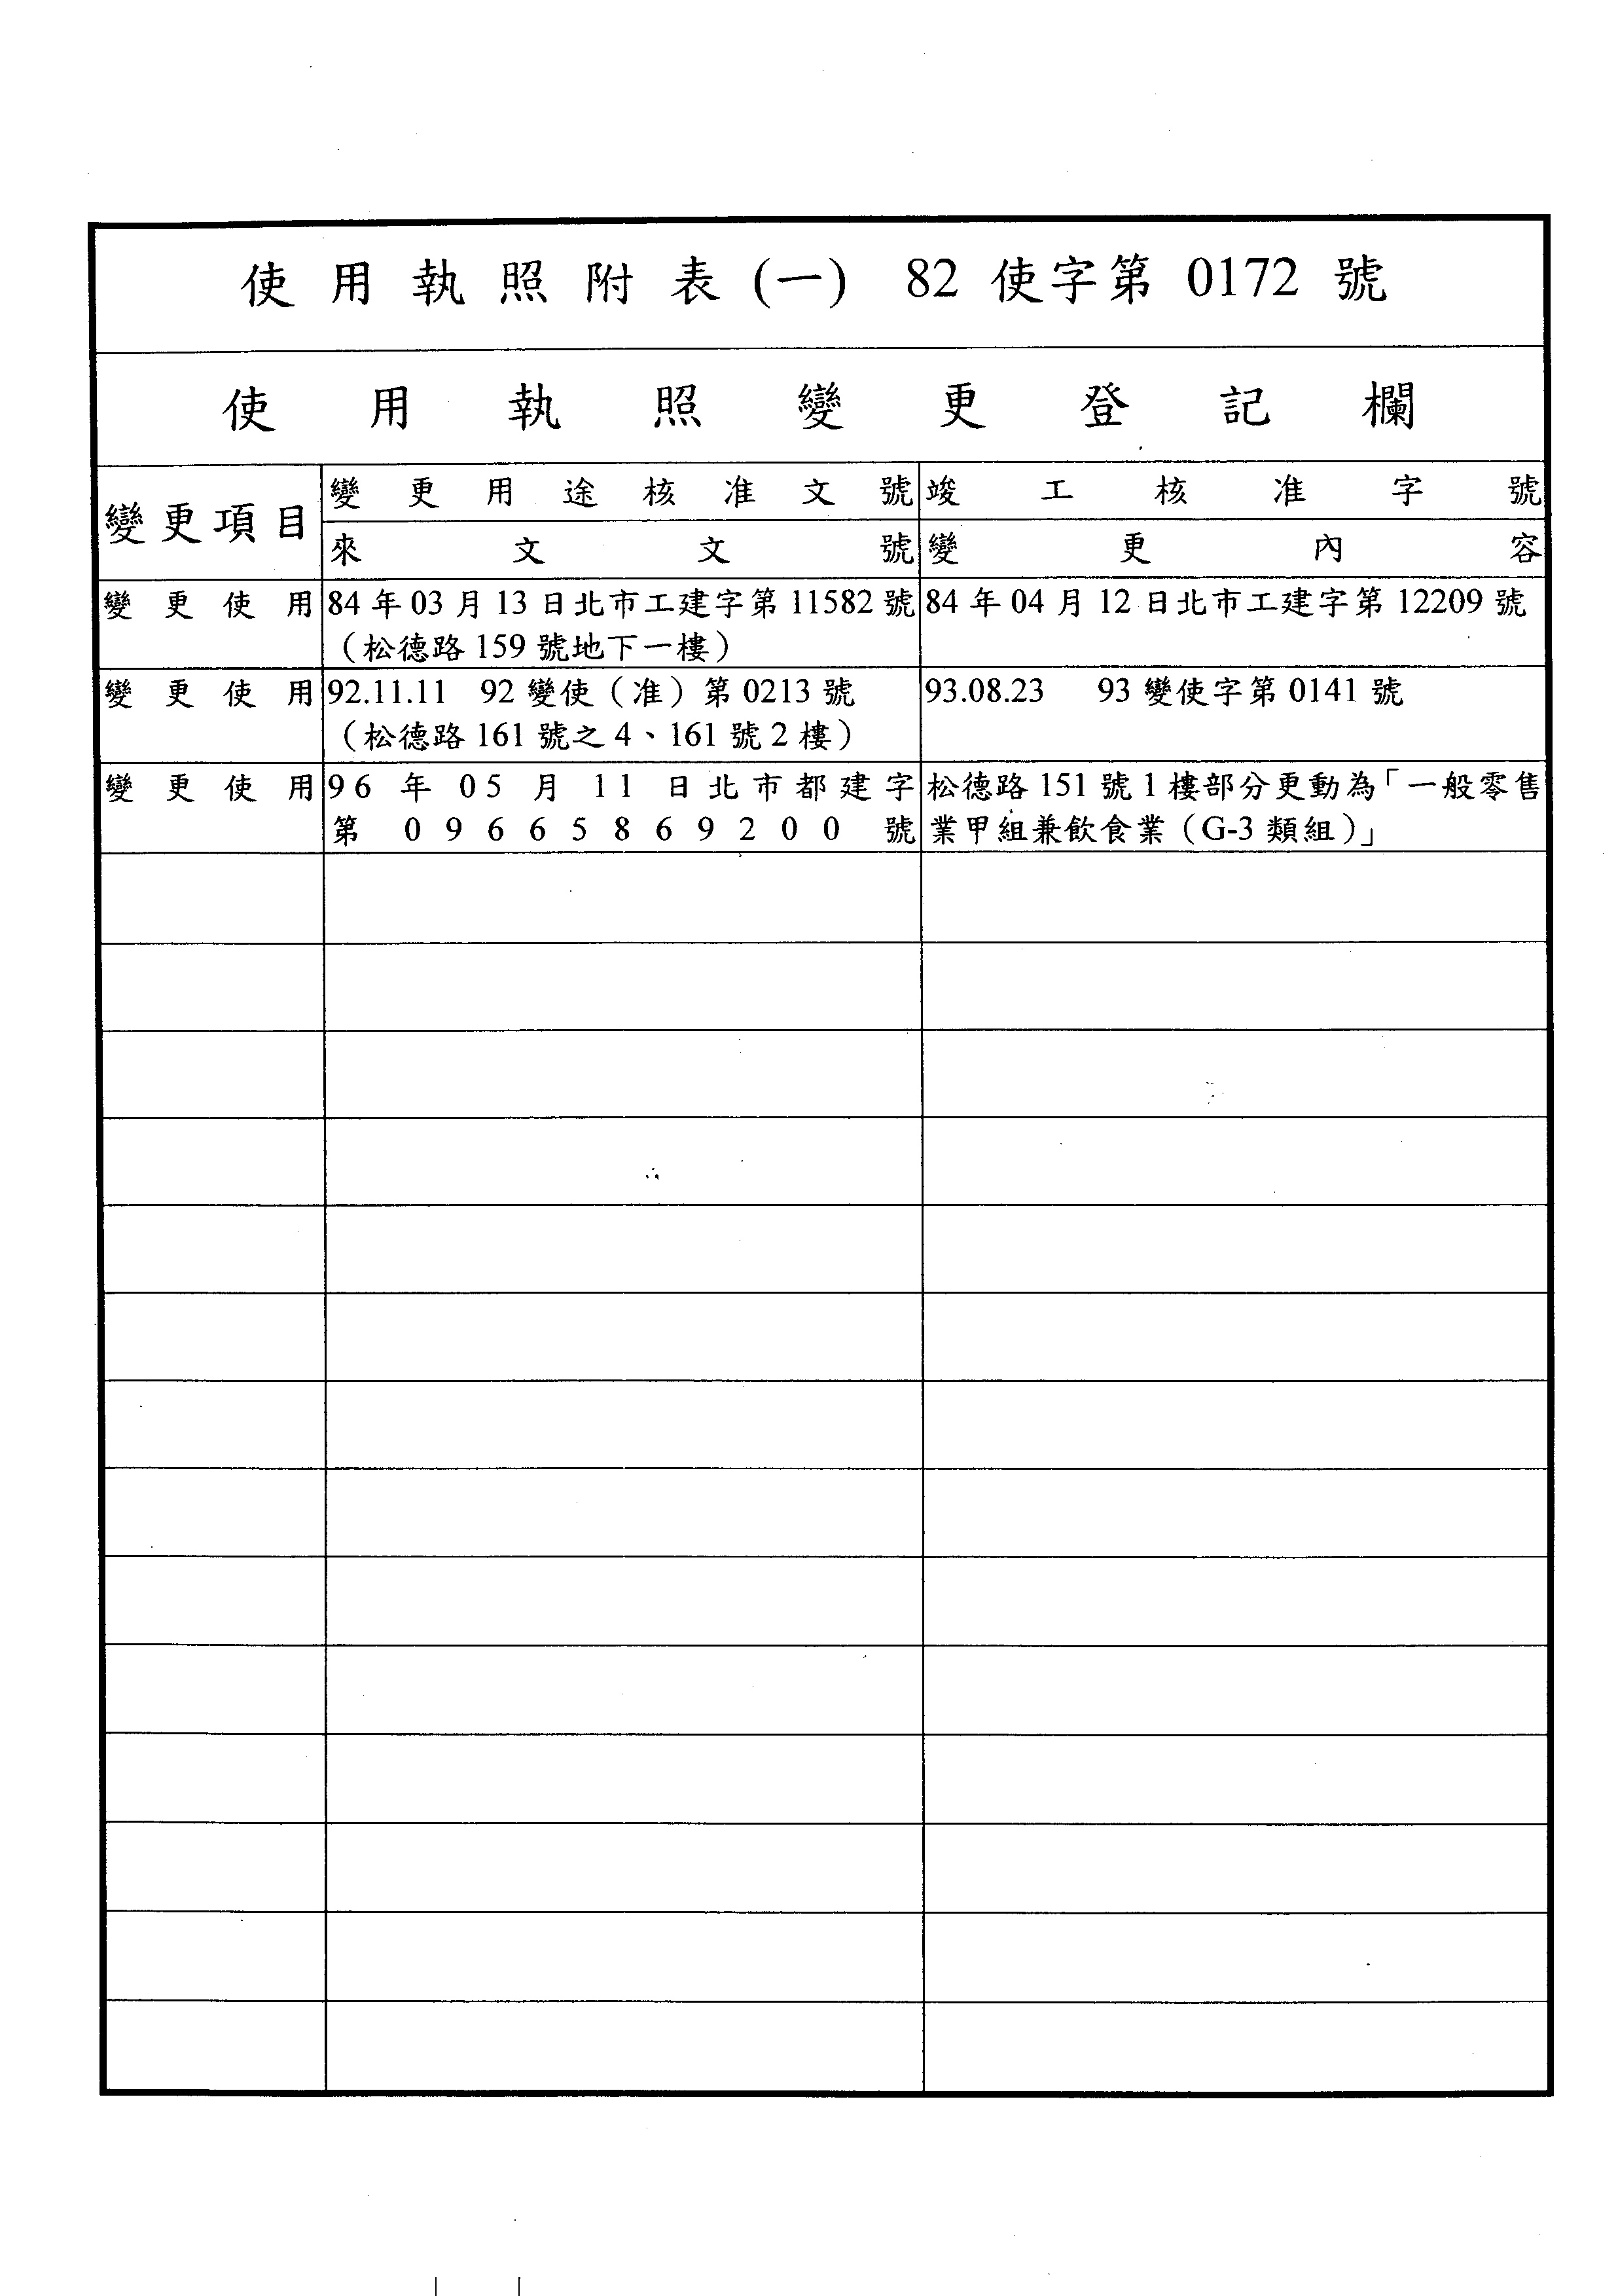 使用執照附表(一) 82 使字第 0172 號
使用執照變更登記欄
變更項目
變更用途核准文號
竣工核准字號
來文文號
變更內容
變更使用
84 年 03 月 13 日北市工建字第 11582 號
(松德路 159 號地下一樓)
84 年 04 月 12 日北市工建字第 12209 號
變更使用
92.11.11 92 變使(准)第 0213 號
(松德路 161 號之 4、161 號 2 樓)
93.08.23 93 變使字第 0141 號
變更使用
96 年 05 月 11 日北市都建字
第 09665869200 號
松德路 151 號 1 樓部分更動為「一般零售
業甲組兼飲食業(G-3 類組)」